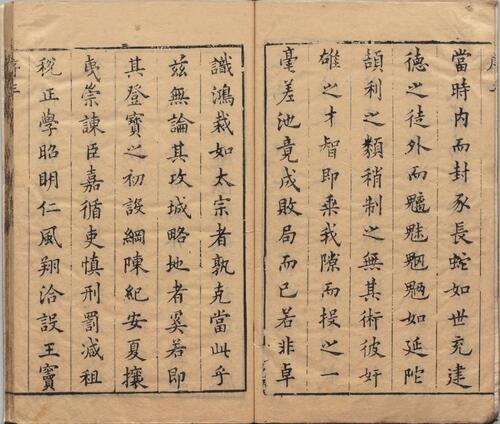 當時内而封豕長蛇如世充建
徳之徒外而魑魅魍魎如延陀
頡利之類稍制之無其術彼奸
雄之才智即乘我隙而投之一
毫差池竟成敗局而已若非卓
識鴻裁如太宗者孰克當此乎
茲無論其攻城略地者奚若即
其登寶之初設綱陳紀安夏攘
夷崇諫臣嘉循吏慎刑罰減租
稅正學昭明仁風翔洽設王竇
序三